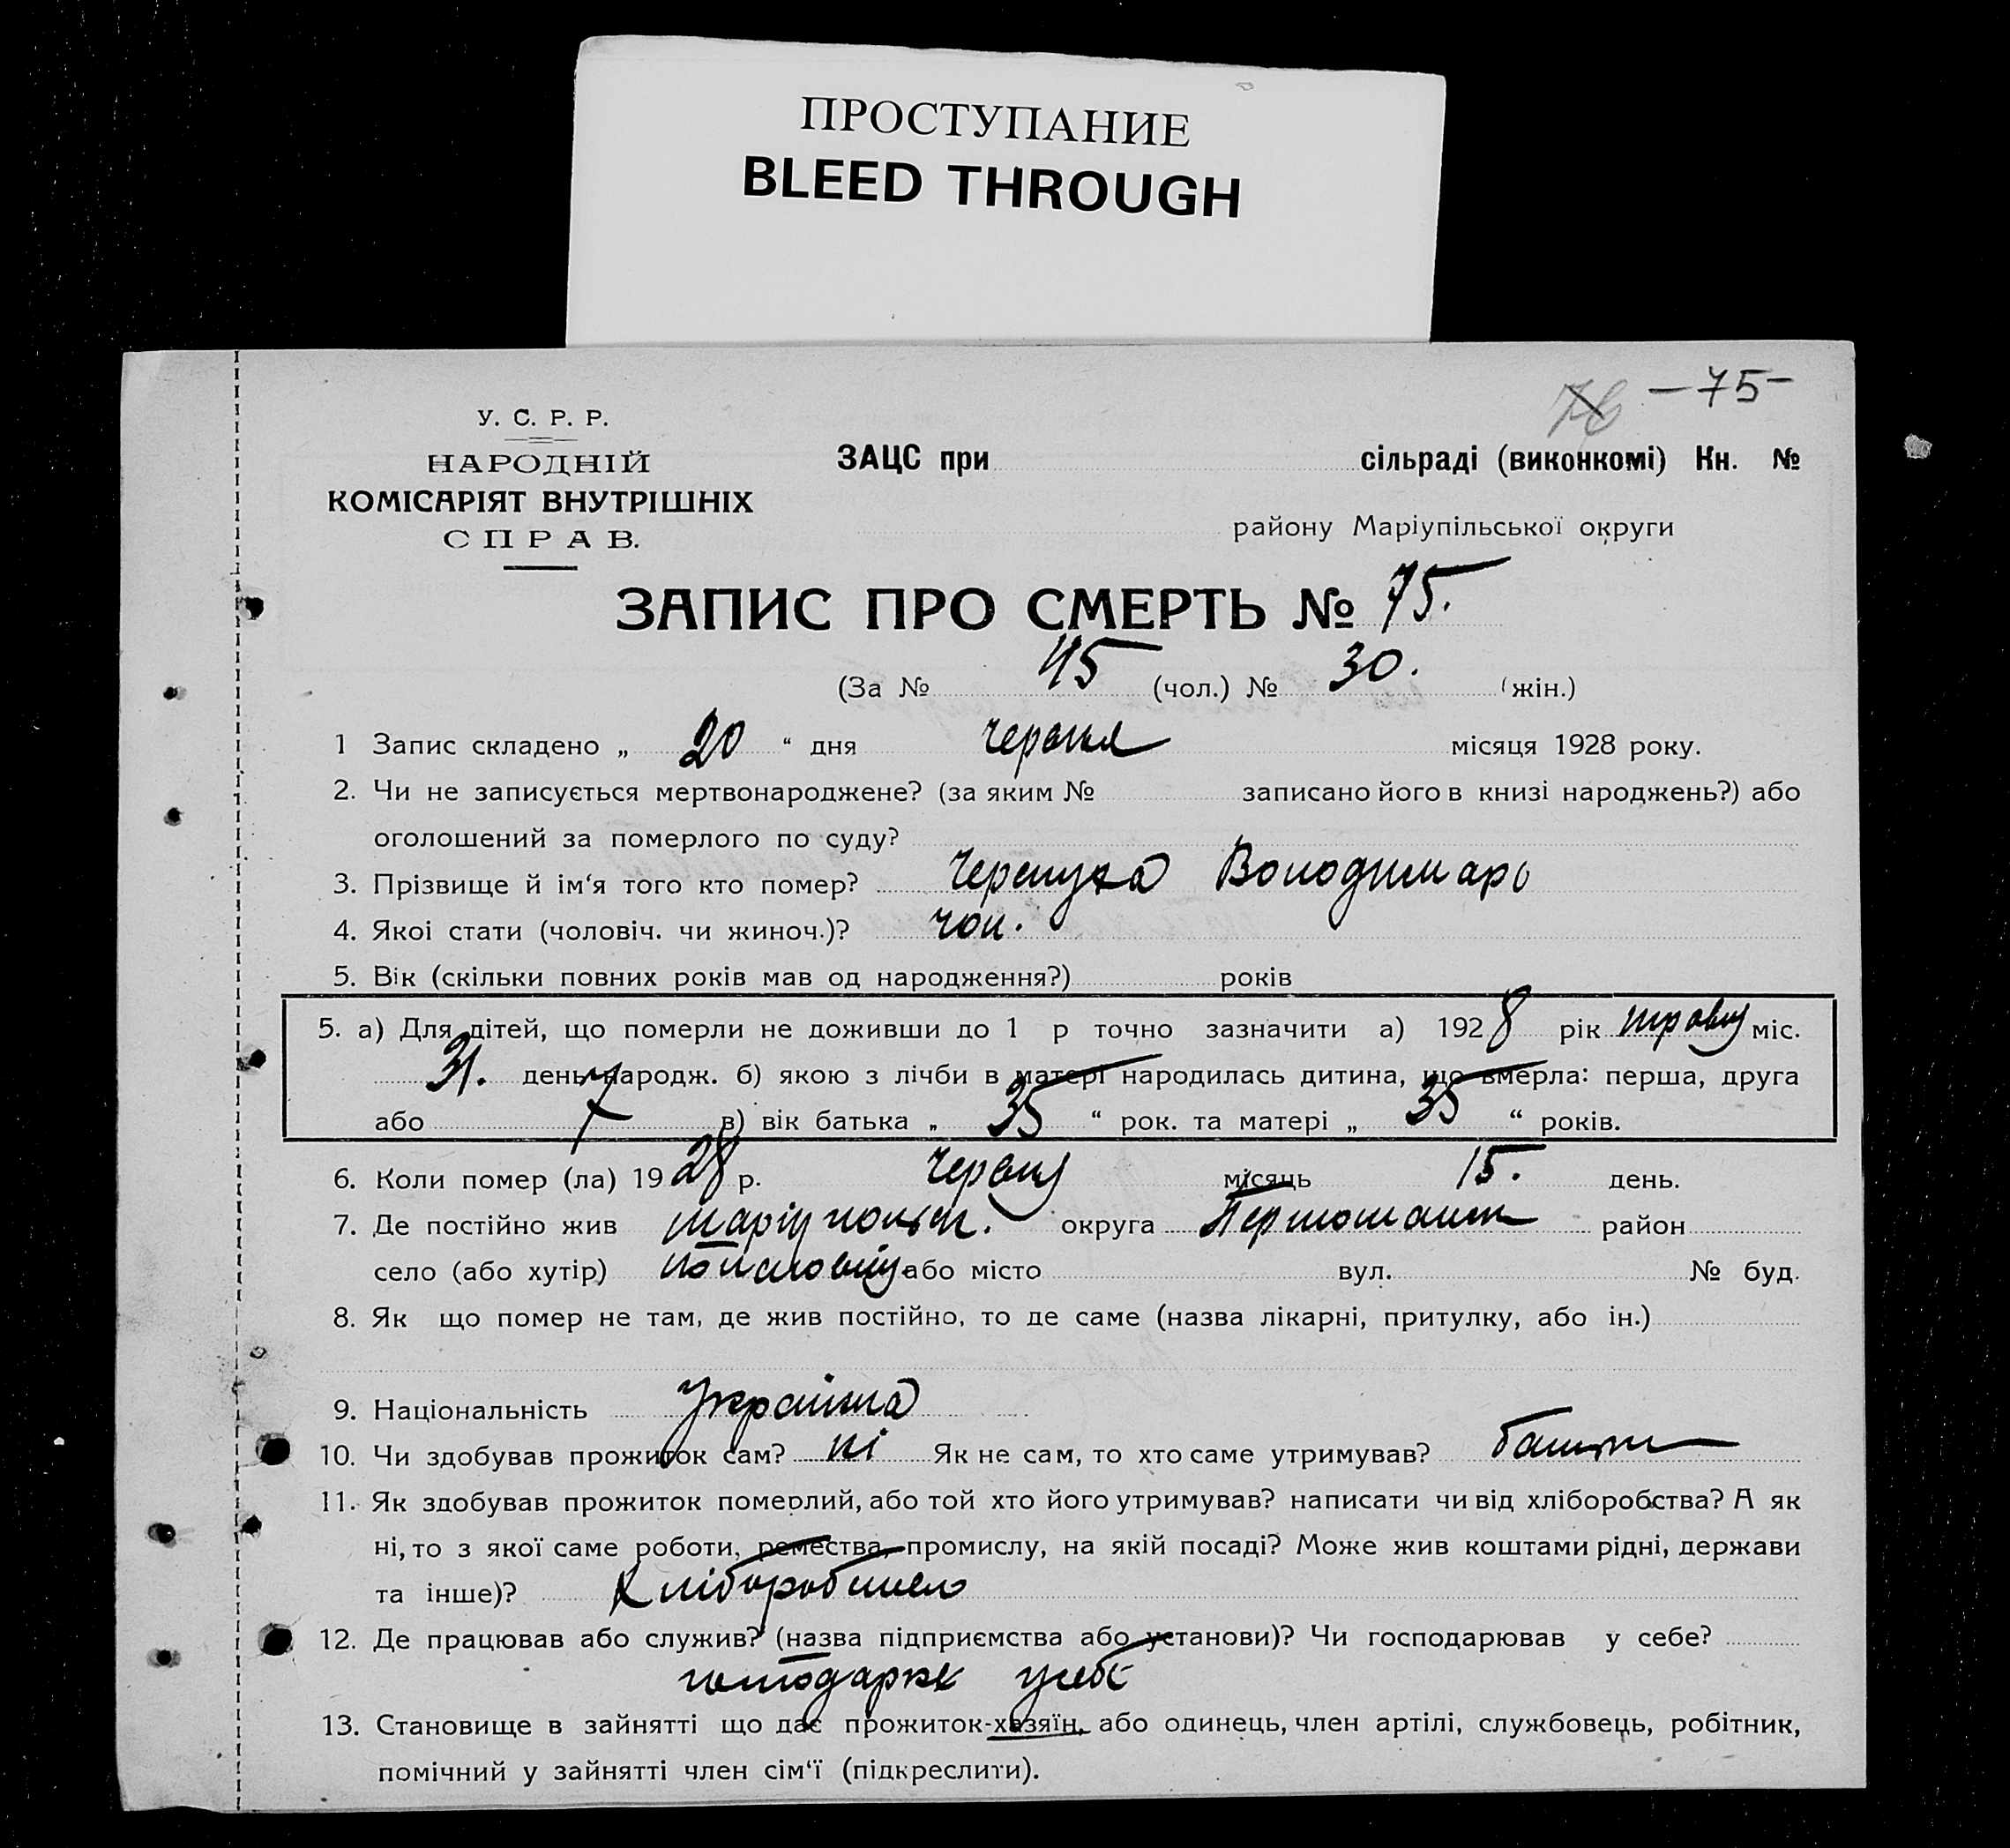 ПРОСТУПАНИЕ
BLEED THROUGH
76 — 75 —
У. С. Р. Р.
НАРОДНІЙ
КОМІСАРІЯТ ВНУТРІШНІХ
СПРАВ.
ЗАЦС при сільраді (виконкомі) Кн. №
району Маріупільської округи
ЗАПИС ПРО СМЕРТЬ № 75.
(За № 45 (чол.) № 30. (жін.)
1 Запис складено „ 20 “ дня червня місяця 1928 року.
2. Чи не записується мертвонароджене? (за яким № записано його в книзі народжень?) або
оголошений за померлого по суду?
3. Прізвище й ім‘я того кто помер? Володимарь
4. Якоі стати (чоловіч. чи жиноч.)? чол.
5. Вік (скільки повних років мав од народження?) років
5. а) Для дітей, що померли не доживши до 1 р точно зазначити а) 1928 рік травц міс.
31. день народж. б) якою з лічби в матері народилась дитина, що вмерла: перша, друга
або 7 в) вік батька „ 35 “ рок. та матері „ 35 “ років.
6. Коли помер (ла) 1928 р. червц місяць 15. день.
7. Де постійно жив округа район
село (або хутір) або місто вул. № буд.
8. Як що помер не там, де жив постійно, то де саме (назва лікарні, притулку, або ін.)
9. Національність
10. Чи здобував прожиток сам? ні Як не сам, то хто саме утримував? батьки
11. Як здобував прожиток померлий, або той хто його утримував? написати чи від хліборобства? А як
ні, то з якої саме роботи, ремества, промислу, на якій посаді? Може жив коштами рідні, держави
та інше)?
12. Де працював або служив? (назва підприємства або установи)? Чи господарював у себе?
13. Становище в зайнятті що дає прожиток-хазяїн, або одинець, член артілі, службовець, робітник,
помічний у зайнятті член сім‘ї (підкреслити).